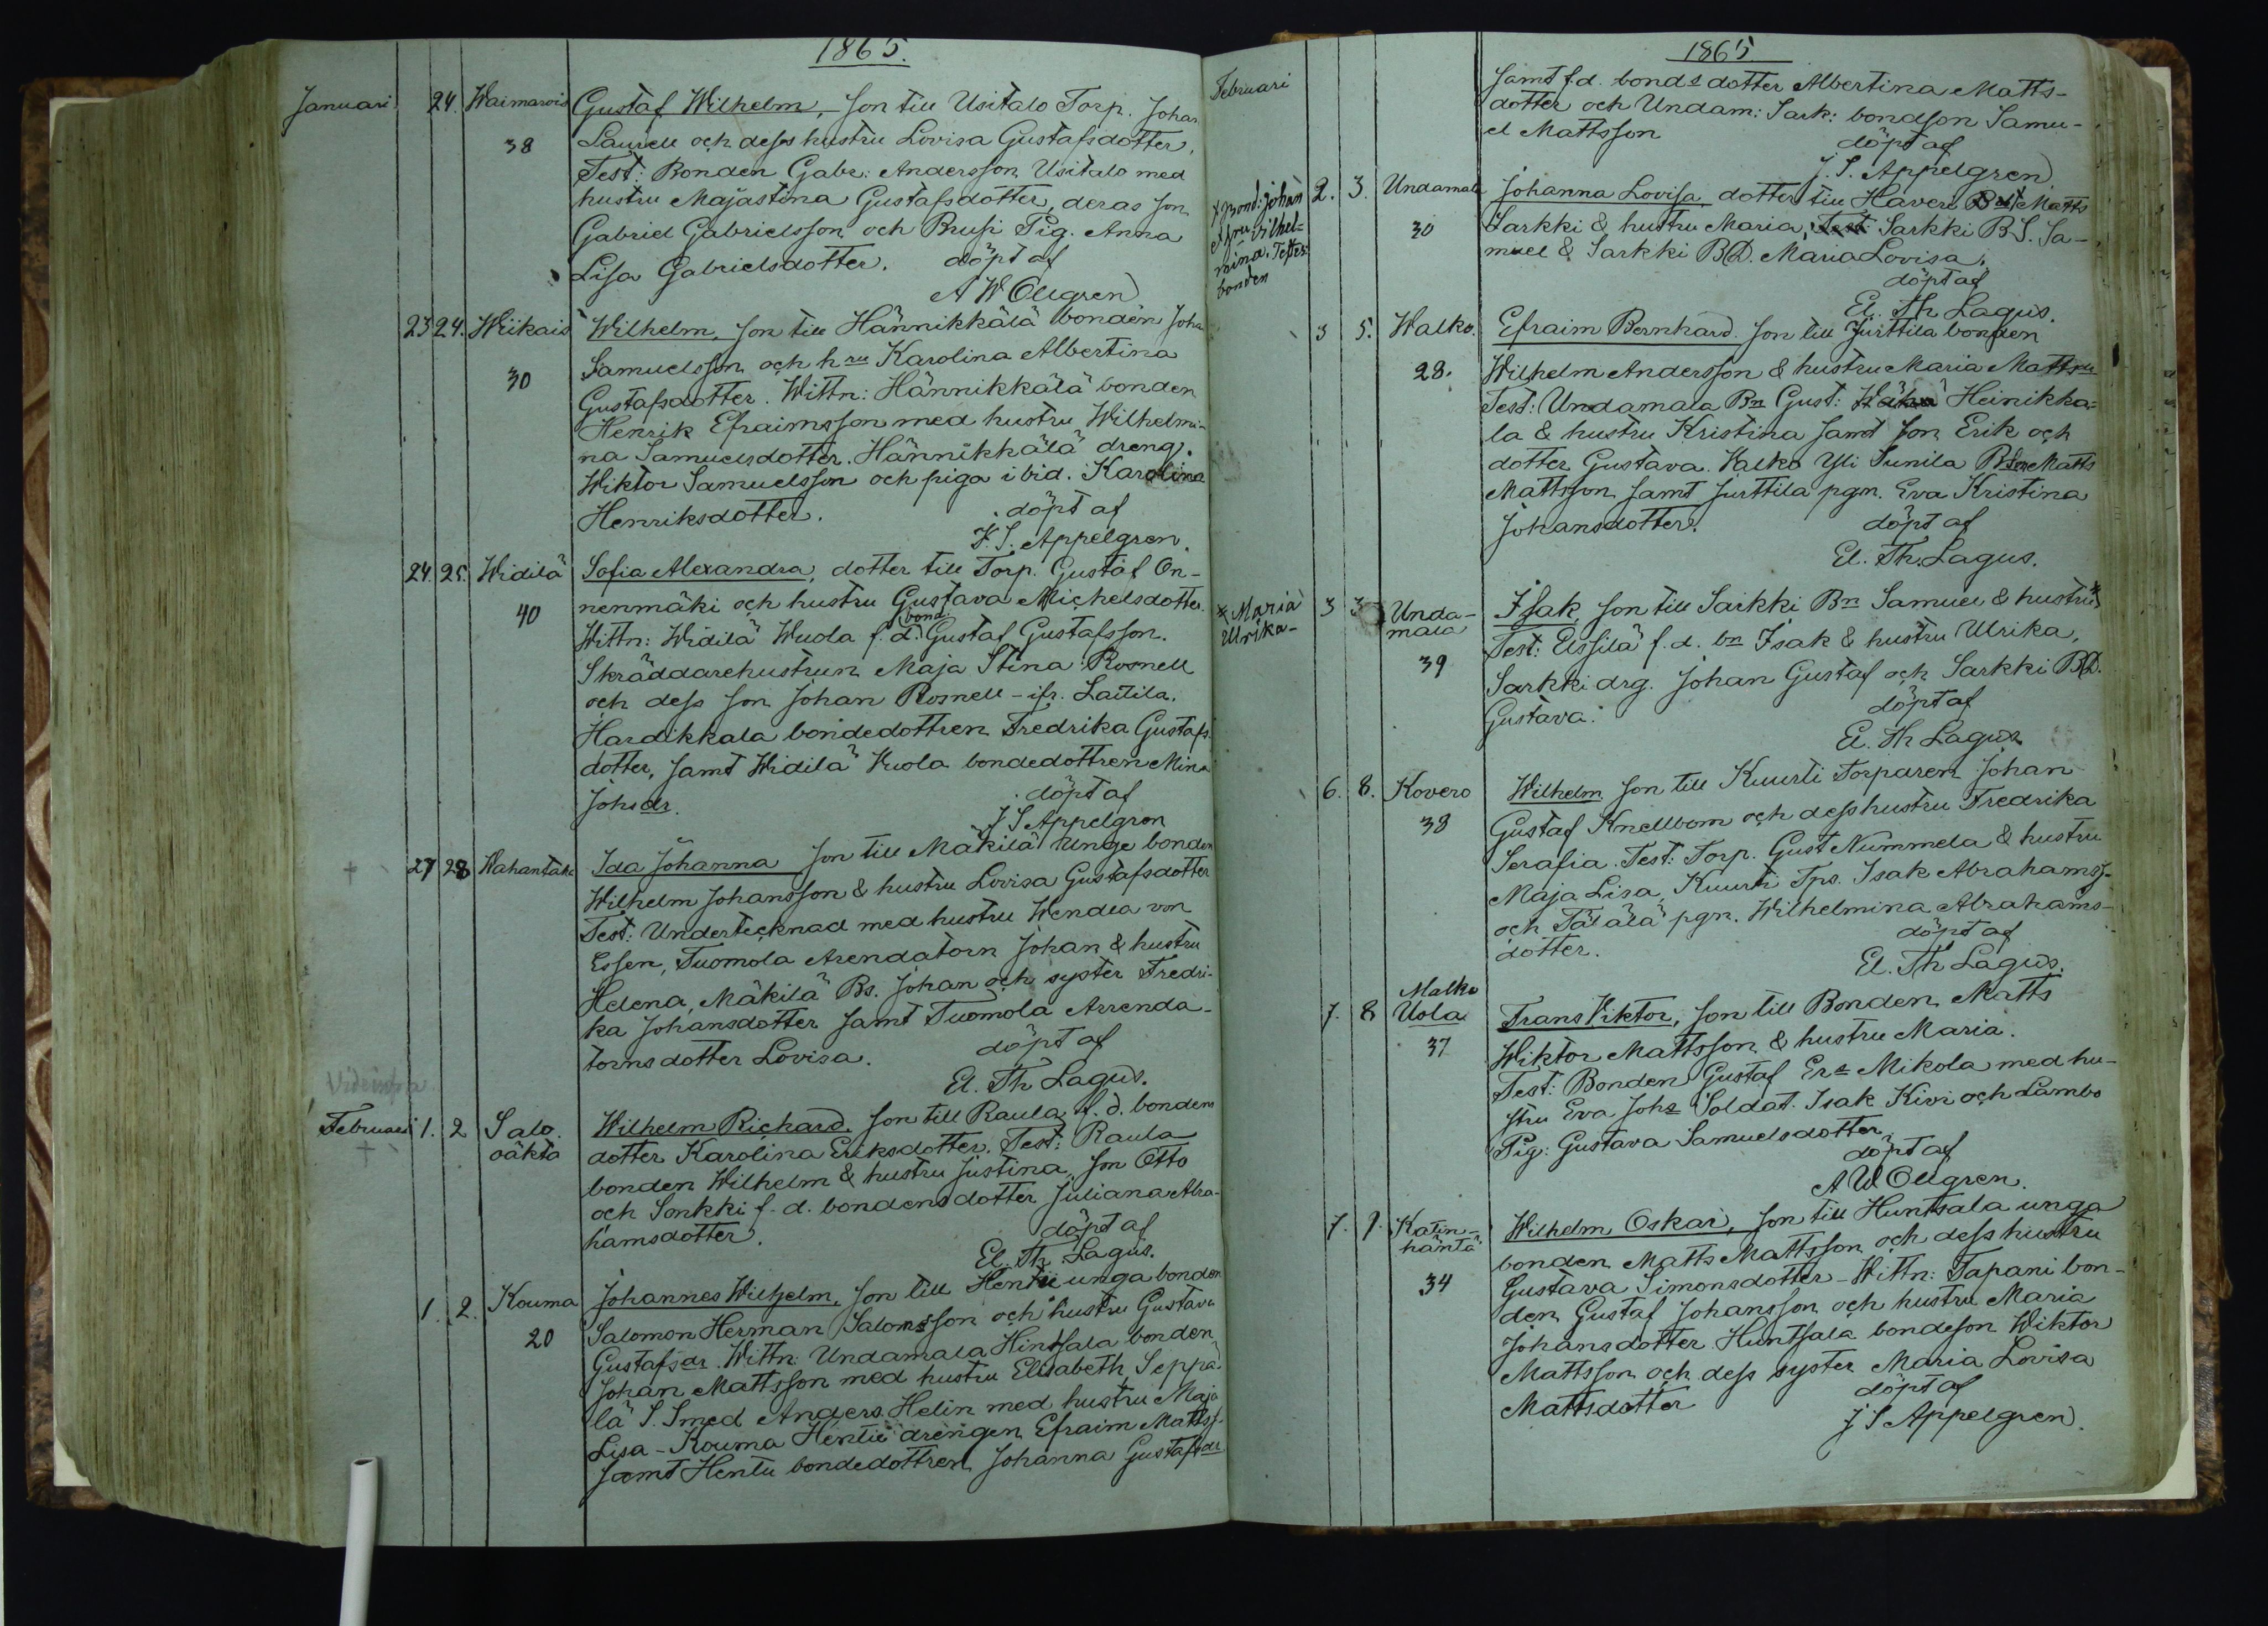 1865.
Januari 24. Waimarois Gustaf Wilhelm, son till Usitalo Torp. Johan
38 Laurell och dess hustru Lovisa Gustafsdotter.
Test: Bonden Gabr: Andersson Usitalo med
hustru Majastina Gustafsdotter, deras son
Gabriel Gabrielsson och Brusi Pig. Anna
Lisa Gabrielsdotter. döpt af
A W Ollgren
23 24. Wiikais Wilhelm, son till Hännikkälä bonden Joha
30 Samuelsson och hru Karolina Albertina
Gustafsdotter. Wittn: Hännikkälä bonden
Henrik Efraimsson med hustru Wilhelmi-
na Samuelsdotter. Hännikkälä dreng.
Wiktor Samuelsson och piga ibid. Karolina
Henriksdotter. döpt af
J. S. Appelgren.
24. 25. Widilä Sofia Alexandra, dotter till Torp. Gustaf On-
40 nenmäki och hustru Gustava Michelsdotter.
Wittn: Widilä Wuola f.d. bond Gustaf Gustafsson.
Skräddarehustrun Maja Stina Rosnell
och dess son Johan Rosnell - ifr. Laitila.
Hardikkala bondedottren Fredrika Gustafs
dotter, samt Widilä Vuola bondedottren Mina
Johsdr. döpt af
J S Appelgren
+ 27 28 Wahantaka Ida Johanna son till Mäkilä Unge bonden
Wilhelm Johansson & hustru Lovisa Gustafsdotter
Test: Undertecknad med hustru Wendla von
Essen, Tuomola Arendatorn Johan & hustru
Helena, Mäkilä Bs. Johan och syster Fredri-
ka Johansdotter samt Tuomola Arrenda-
torns dotter Lovisa. döpt af
El. Th Lagus.
Vide infra
Februari 1. 2 Salo. Wilhelm Richard. son till Raula f. d. bondens
+ oäkta dotter Karolina Eriksdotter. Test: Raula
bonden Wilhelm & hustru Justina, son Otto
och Sonkki f. d. bondens dotter Juliana Abra-
hamsdotter. döpt af
El. Th. Lagus.
1. 2. Kouma Johannes Wilhelm. son till Hentu unga bonden
20 Salomon Herman Salomsson och hustru Gustava
Gustafsdr. Wittn: Undamala Hintsala bonden
Johan Mattsson med hustru Elisabeth, Seppä
lä S. Smed Anders Helin med hustru Maja
Lisa - Kouma Hentu drengen Efraim Mattss.
samt Hentu bondedottren Johanna Gustafsdr
1865
Februari
samt f.d. bonds dotter Albertina Matts-
dotter och Undam: Sark: bondson Samu-
el Mattsson döpt af
J. S. Appelgren
x Bond: Johan
& fru Vilhel-
mina. Tetters
bonden
2. 3. Undamala Johanna Lovisa dotter till Haveri Matts
30 Sarkki & hustru Maria, Test: Sarkki B S. Sa-
muel & Sarkki BD. Maria Lovisa.
döpt af
El. Th Lagus.
3 5. Walko. Efraim Bernhard. Son till Jurttila bonden
28. Wilhelm Andersson & hustru Maria Mattsdr
Test: Undamala Bn Gust: Heinikka-
la & hustru Kristina samt son Erik och
dotter Gustava. Valko Yli Sunila Matts
Mattsson samt Jurttila pgn. Eva Kristina
Johansdotter. döpt af
El. Th. Lagus.
x Maria
Ulrika-
3 3 Unda- Isak, son till Sarkki Bn Samuel & hustru x
mala Test: Elssilä f. d. bn Isak & hustru Ulrika,
39 Sarkki drg. Johan Gustaf och Sarkki BD.
Gustava. döpt af
El. Th Lagus
6. 8. Kovero Wilhelm son till Kuurti Torparen Johan
38 Gustaf Knellbom och dess hustru Fredrika
Serafia. Test: Torp. Gust Nummela & hustru
Maja Lisa, Kuurti Tps. Isak Abrahamss.
och Tälälä pgn. Wilhelmina Abrahams-
dotter. döpt af
El. Th Lagus.
Malko
7. 8 Uola Frans Viktor, son till Bonden Matts
37 Wiktor Mattsson & hustru Maria.
Test: Bonden Gustaf Ers Mikola med hu-
stru Eva Johs Soldat. Isak Kivi och Lambo
Pig: Gustava Samuelsdotter
döpt af
A W Ollgren.
7. 9. Katin- Wilhelm Oskar, son till Huntsala unga
häntä bonden Matts Mattsson och dess hustru
34 Gustava Simonsdotter - Wittn: Tapani bon-
den Gustaf Johansson och hustru Maria
Johansdotter Huntsala bondeson Wiktor
Mattsson och dess syster Maria Lovisa
Mattsdotter döpt af
J S Appelgren.